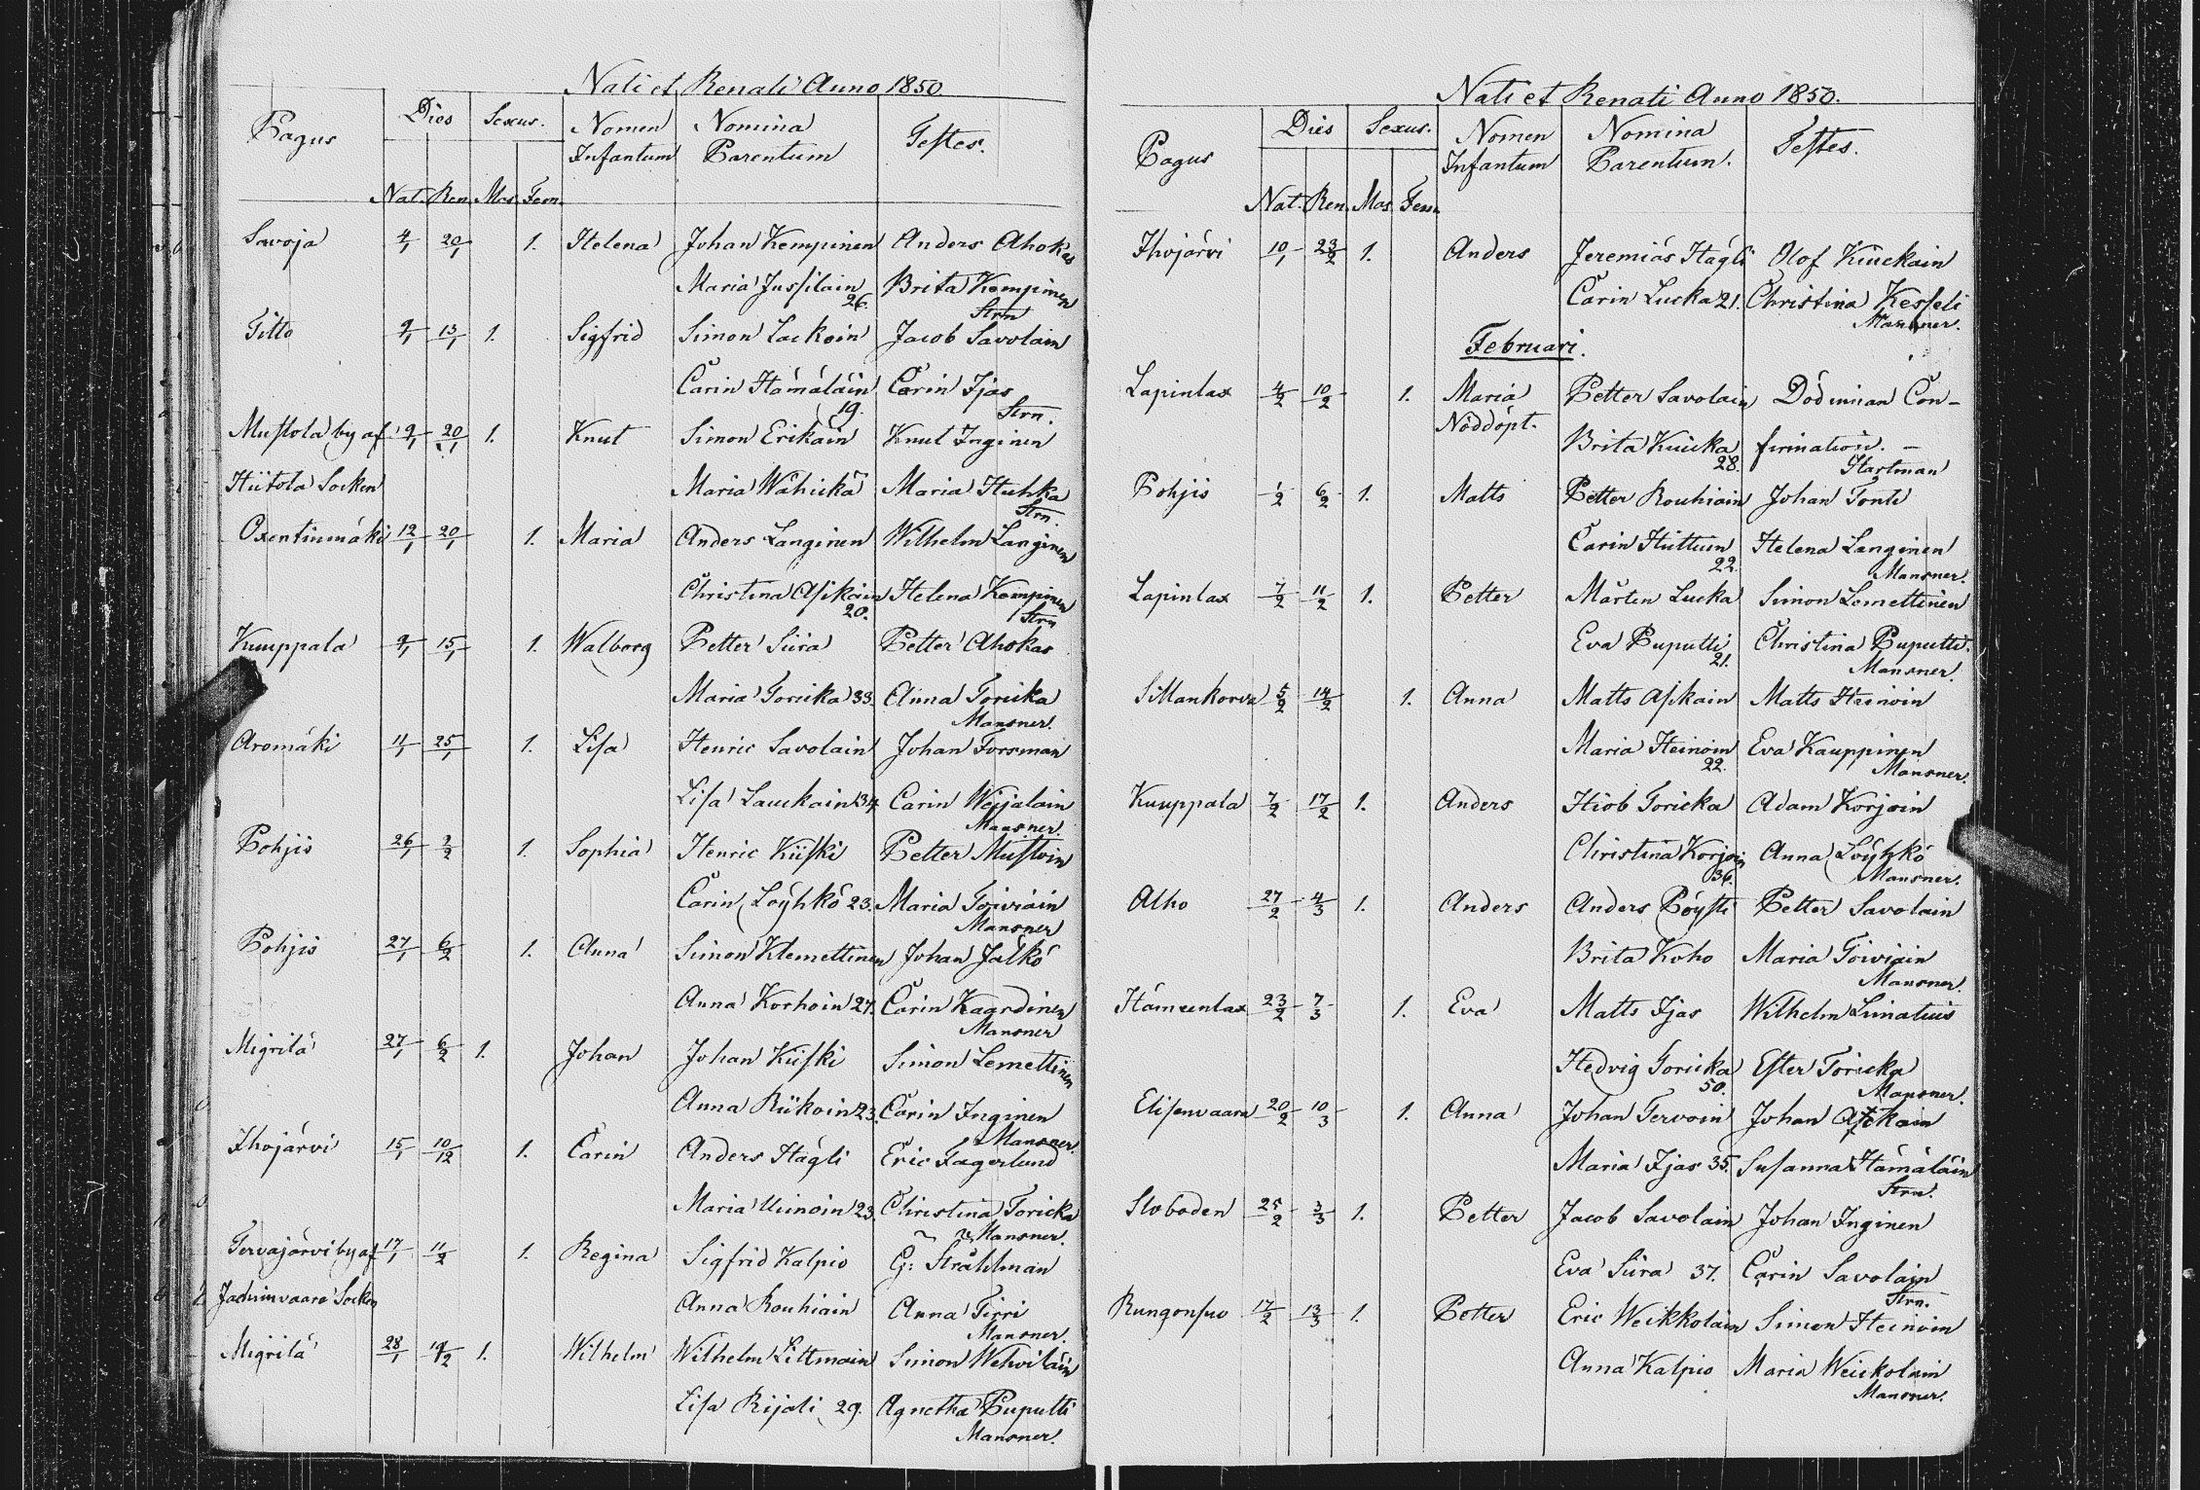 Nati et Renati Anno 1850
Pagus Dies Sexus. Nomen Infantum Nomina Parentum Testes.
Nat. Ren. Mas. Fem.
Savoja 4/1 20/1 1. Helena Johan Kempinen Anders Ahokas
Maria Jussilain 26. Brita Kempinen Strn
Titto 9/1 13/1 1. Sigfrid Simon Lackoin Jacob Savolain
Carin Hämäläin 19. Carin Ijas Strn.
Mustola by af 9/1 20/1 1. Knut Simon Erikäin Knut Inginen
Hiitola Socken Maria Wähickä Maria Huhka Strn.
Oxentiinmäki 12/1 20/1 1. Maria Anders Langinen Wilhelm Langinen
Christina Asikain 20. Helena Kempinen Strn
Kuuppala 9/1 15/1 1. Walborg Petter Siira Petter Ahokas
Maria Toricka 33. Anna Toricka Mansner.
Aromäki 11/1 25/1 1. Lisa Henric Savolain Johan Forsman
Lisa Lauckain 34. Carin Weijalain Mansner.
Pohjis 26/1 2/2 1. Sophia Henric Kiiski Petter Mustoin
Carin Löyhkö 23. Maria Toiviain Mansner
Pohjis 27/1 6/2 1. Anna Simon Klemettinen Johan Jalkö
Anna Korhoin 27. Carin Kaardinen Mansner
Migrilä 27/1 6/2 1. Johan Johan Kiiski Simon Lemettinen
Anna Riikoin 23. Carin Inginen Mansner.
Ihojärvi 15/1 10/12 1. Carin Anders Hägli Eric Fagerlund
Maria Uinoin 23. Christina Toricka Mansner.
Tervajärvi by af 17/1 11/2 1. Regina Sigfrid Kalpio G: Stråhlman
Jachimvaara Socken Anna Rouhiain Anna Tirri Mansner.
Migrilä 28/1 19/2 1. Wilhelm Wilhelm Littmain Simon Wehviläin
Lisa Rijali 29. Agnetha Puputti Mansner.
Nati et Renati Anno 1850.
Pagus Dies Sexus. Nomen Infantum Nomina Parentum. Testes.
Nat. Ren. Mas Fem
Ihojärvi 10/1 23/2 1. Anders Jeremias Hägli Olof Kiuckain
Carin Lucka 21. Christina Kesseli Mansner.
Februari.
Lapinlax 4/2 10/2 1. Maria Petter Savolain Död innan Con-
Nöddöpt. Brita Kuicka 28. firmation. – Hartman
Pohjis 1/2 6/2 1. Matts Petter Rouhiain Johan Tonti
Carin Huttuin 22. Helena Langinen Mansner.
Lapinlax 7/2 11/2 1. Petter Mårten Lucka Simon Lemettinen
Eva Puputti 21. Christina Puputti. Mansner.
Sillankorva 5/2 14/2 1. Anna Matts Asikain Matts Heinoin
Maria Heinoin 22. Eva Kauppinen Mansner.
Kuuppala 7/2 17/2 1. Anders Hiob Toricka Adam Korjoin
Christina Korjoin 36. Anna Löyhkö Mansner.
Alho 27/2 4/3 1. Anders Anders Pöysti Petter Savolain
Brita Koho Maria Toiviain Mansner.
Hämeenlax 23/2 7/3 1. Eva Matts Ijas Wilhelm Limatius
Hedvig Toricka 50. Ester Toricka Mansner.
Elisenvaara 20/2 10/3 1. Anna Johan Tervoin Johan Asikain
Maria Ijas 35. Susanna Hämäläin Strn.
Sloboden 25/2 3/3 1. Petter Jacob Savolain Johan Inginen
Eva Siira 37. Carin Savolain Strn.
Rungonsuo 17/2 13/3 1. Petter Eric Weikkolain Simon Heinoin
Anna Kalpio Maria Weickolain Mansner.